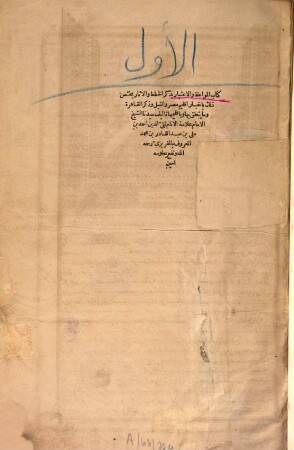 الأول
كتاب المواعظ والاعتبار بذكر الخطط والاثار يختص
ذلك باخبار اقليم مصر والنيل وذكر القاهرة
وما يتعلق بها وباقليمها تاليف سيدنا الشيخ
الامام علامة الانام تقي الدين احمد بن
علي بن عبد القادر بن محمد
المعروف بالمقريزي رحمه
الله ونفع بعلومه
امين